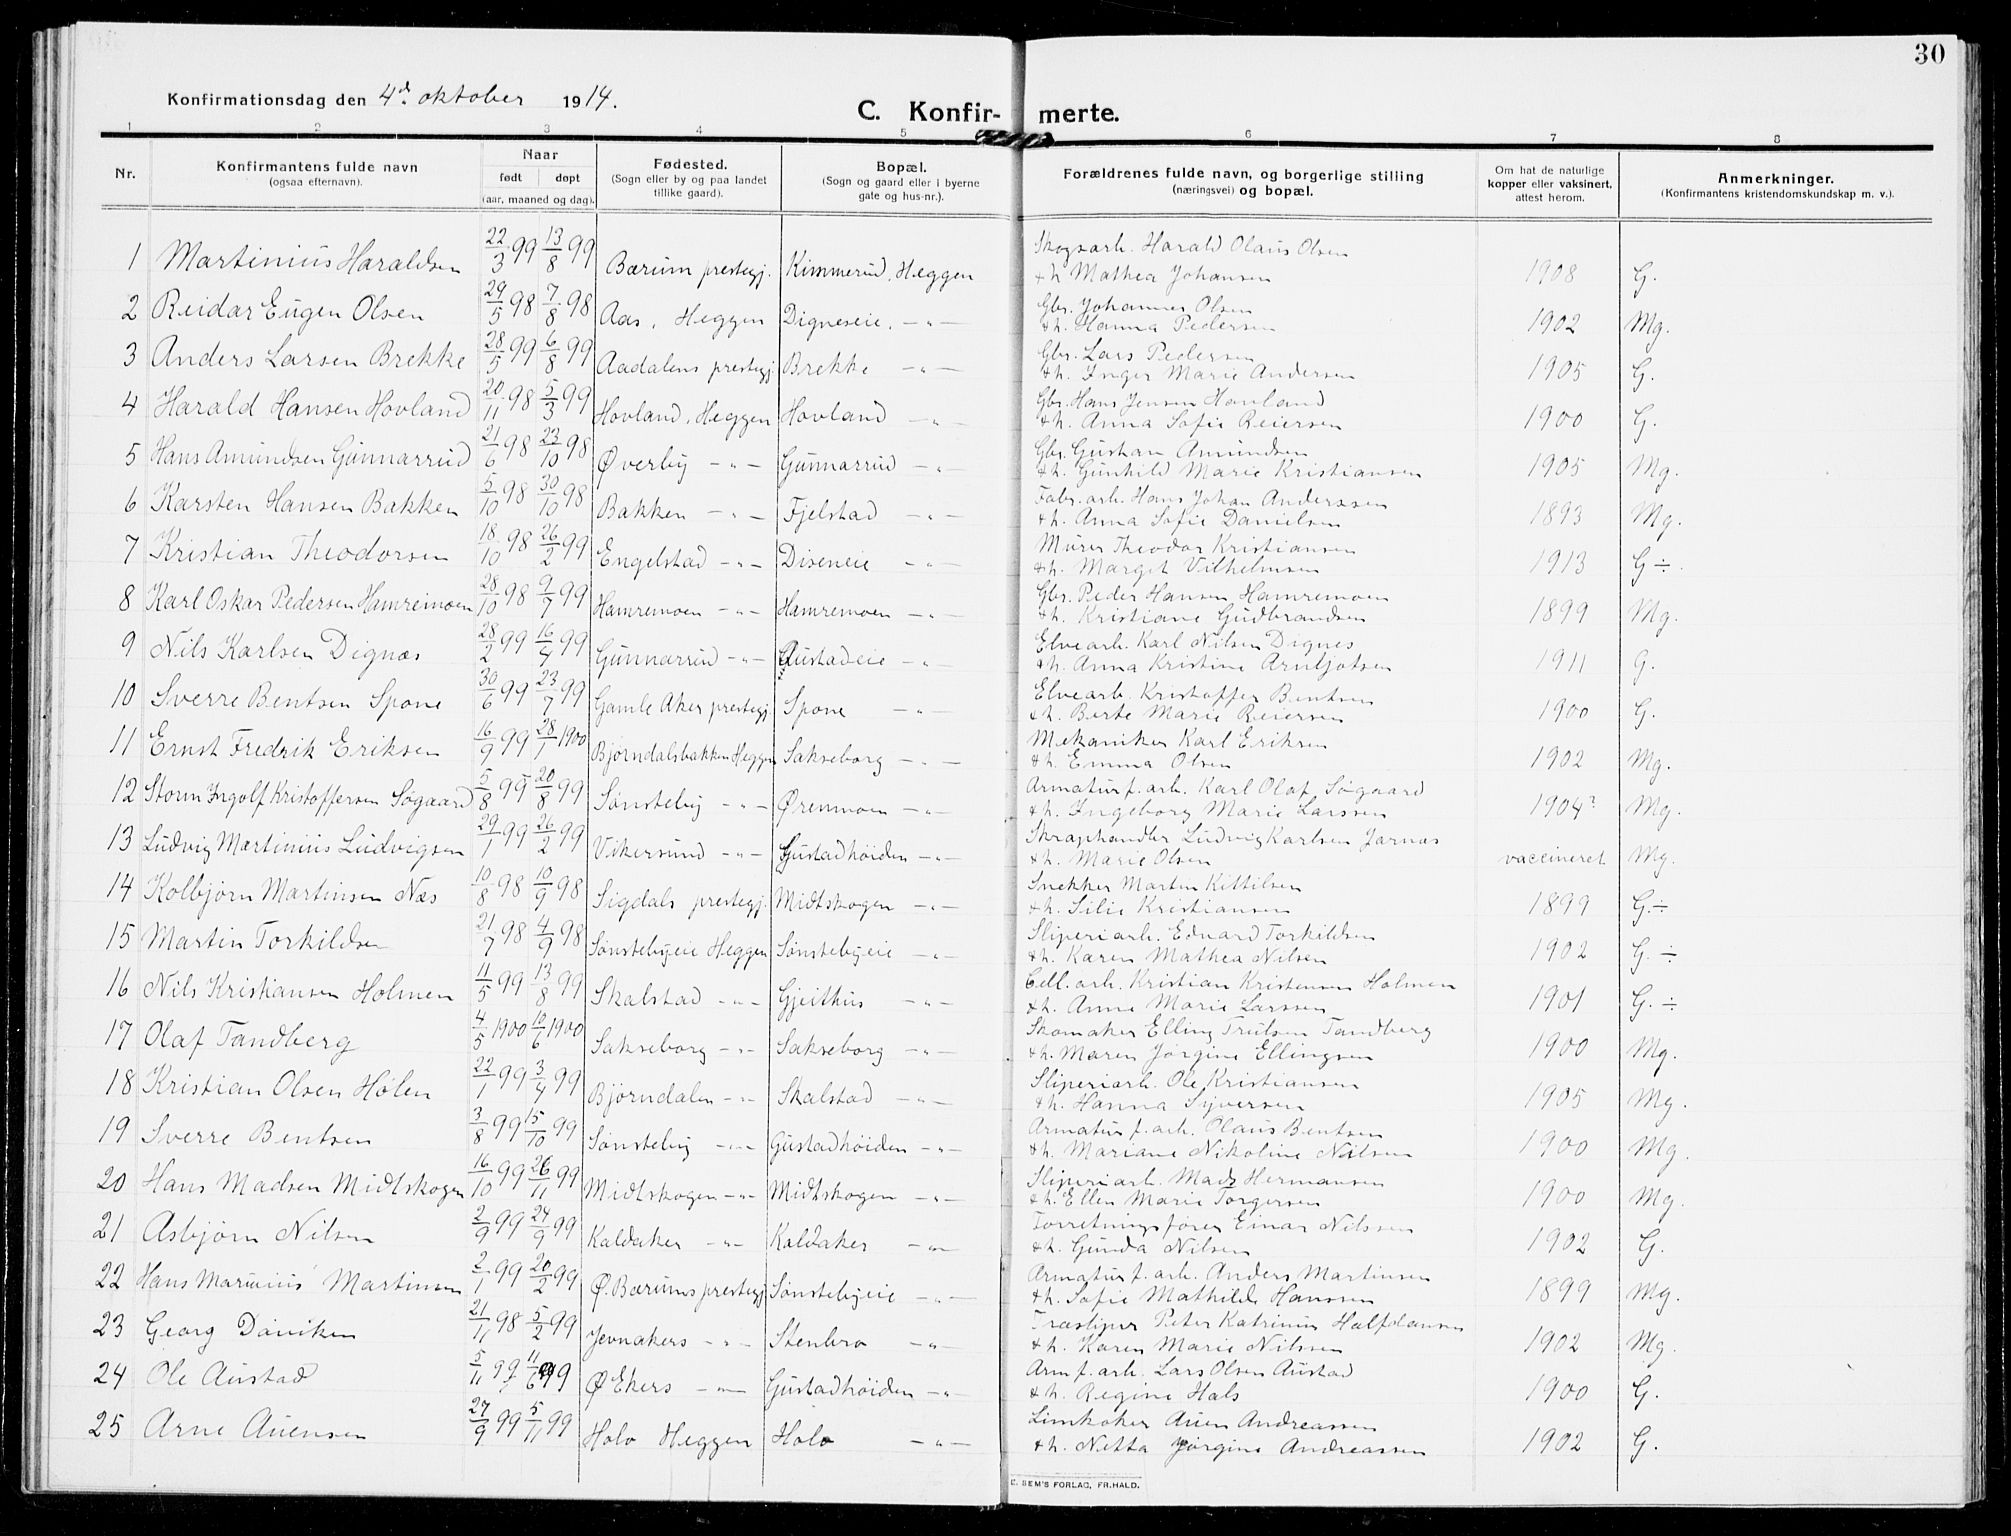 30
Konfirmationsdag den 4de oktober 1914.
C. Konfir- merte.
1 2 3 4 5 6 7 8
Nr. Konfirmantens fulde navn (ogsaa efternavn). Naar født døpt (aar, maaned og dag). Fødested. (Sogn eller by og paa landet tillike gaard). Bopæl. (Sogn og gaard eller i byerne gate og hus-nr.). Forældrenes fulde navn, og borgerlige stilling (næringsvei) og bopæl. Om hat de naturlige kopper eller vaksinert, attest herom. Anmerkninger. (Konfirmantens kristendomskundskap m. v.).
1 Martinius Haraldsen 22/3 99 13/8 99 Bærum prestegj. Kimmerud, Heggen Skogsarb. Harald Olaus Olsen
+ h. Mathea Johansen 1908 G.
2 Reidar Eugen Olsen 29/5 98 7/8 98 Aas, Heggen Digneseie, -"- Gbr. Johannes Olsen
+ h. Hanna Pedersen 1902 Mg.
3 Anders Larsen Brekke 28/5 99 6/8 99 Aadalens prestegj. Brekke -"- Gbr. Lars Pedersen
+ h. Inger Marie Andersen 1905 G.
4 Harald Hansen Hovland 20/11 98 5/3 99 Hovland, Heggen Hovland -"- Gbr. Hans Jensen Hovland
+ h. Anna Sofie Reiersen 1900 G.
5 Hans Amundsen Gunnarrud 21/6 98 23/10 98 Øverby -"- Gunnarrud -"- Gbr. Gustav Amundsen
+ h. Gunhild Marie Kristiansen 1905 Mg.
6 Karsten Hansen Bakken 5/10 98 30/10 98 Bakken -"- Fjelstad -"- Fabr. arb. Hans Johan Anderssen
+ h. Anna Sofie Danielsen 1893 Mg.
7 Kristian Theodorsen 18/10 98 26/2 99 Engelstad -"- Diseneie -"- Murer Theodor Kristiansen
+ h. Marget Vilhelmsen 1913 G ÷.
8 Karl Oskar Pedersen Hamremoen 28/10 98 9/7 99 Hamremoen -"- Hamremoen -"- Gbr. Peder Hansen Hamremoen
+ h. Kristiane Gudbrandsen 1899 Mg.
9 Nils Karlsen Dignæs 28/2 99 16/4 99 Gunnarrud -"- Austadeie -"- Elvearb. Karl Nilsen Dignes
+ h. Anna Kristine Arntjotsen 1911 G.
10 Sverre Bentsen Spone 30/6 99 23/7 99 Gamle Aker prestegj. Spone -"- Elvearb. Kristoffer Bentsen
+ h. Berte Marie Reiersen 1900 G.
11 Ernst Fredrik Eriksen 16/9 99 28/1 1900 Bjørndalsbakken Heggen Sakseborg -"- Mekaniker Karl Eriksen
+ h. Emma Olsen 1902 Mg.
12 Storm Ingolf Kristoffersen Søgaard 5/8 95 20/8 99 Sønsteby -"- Ørenmoen -"- Armatur f. arb. Karl Olaf Søgaard
+ h. Ingeborg Marie Larssen 1904? Mg.
13 Ludvig Martinius Ludvigsen 29/1 99 26/2 99 Vikersund -"- Gustadhøiden -"- Skraphandler Ludvig Karlsen Jarnæs
+ h. Marie Olsen vaccineret Mg.
14 Kolbjørn Martinsen Næs 10/8 98 10/9 98 Sigdals prestegj. Midtskogen -"- Snekker Martin Kittilsen
+ h. Silie Kristiansen 1899 G. ÷
15 Martin Torkildsen 21/7 98 4/9 98 Sønstebyeie Heggen Sønstebyeie -"- Sliperiarb. Edvard Torkildsen
+ h. Karen Mathea Nilsen 1902 G. ÷
16 Nils Kristiansen Holmen 11/5 99 13/8 99 Skalstad -"- Gjeithus -"- Cell. arb. Kristian Kristensen Holmen
+ h. Anne Marie Larssen 1901 G. ÷
17 Olaf Tandberg 4/5 1900 10/6 1900 Sakseborg -"- Sakseborg -"- Skomaker Elling Trulsen Tandberg
+ h. Maren Jørgine Ellingsen 1900 Mg.
18 Kristian Olsen Hølen 22/1 99 3/4 99 Bjørndalen -"- Skalstad -"- Sliperiarb. Ole Kristiansen
+ h. Hanna Syversen 1905 Mg.
19 Sverre Bentsen 3/8 99 15/10 99 Sønsteby -"- Gustadhøiden -"- Armatur f. arb. Olaus Bentsen
+ h. Mariane Nikoline Nilsen 1900 Mg.
20 Hans Madsen Midtskogen 16/10 99 26/11 99 Midtskogen -"- Midtskogen -"- Sliperiarb. Mads Hermansen
+ h. Ellen Marie Torgersen 1900 Mg.
21 Asbjørn Nilsen 2/9 99 24/9 99 Kaldaker -"- Kaldaker -"- Forretningsfører Einar Nilssen
+ h. Gunda Nilsen 1902 G.
22 Hans Marinius Martinsen 2/1 99 20/2 99 Ø. Bærums prestegj. Sønstebyeie -"- Armatur f. arb. Anders Martinsen
+ h. Sofie Mathilde Hanssen 1899 Mg.
23 Georg Døviken 21/11 98 5/2 99 Jevnakers -"- Stenbro -"- Træsliper Peter Katrinus Halfdansen
+ h. Karen Marie Nilssen 1902 Mg.
24 Ole Austad 5/11 99 11/6 99 Ø Ekers -"- Gustadhøiden -"- Arm. f. arb. Lars Olsen Austad
+ h. Regine Hals 1900 G.
25 Arne Auensen 27/9 99 5/11 99 Holo Heggen Holo -"- Limkoker Auen Andreassen
+ h. Netta Jørgine Andreassen 1902 G.
E. SEM'S FORLAG, FR.HALD.